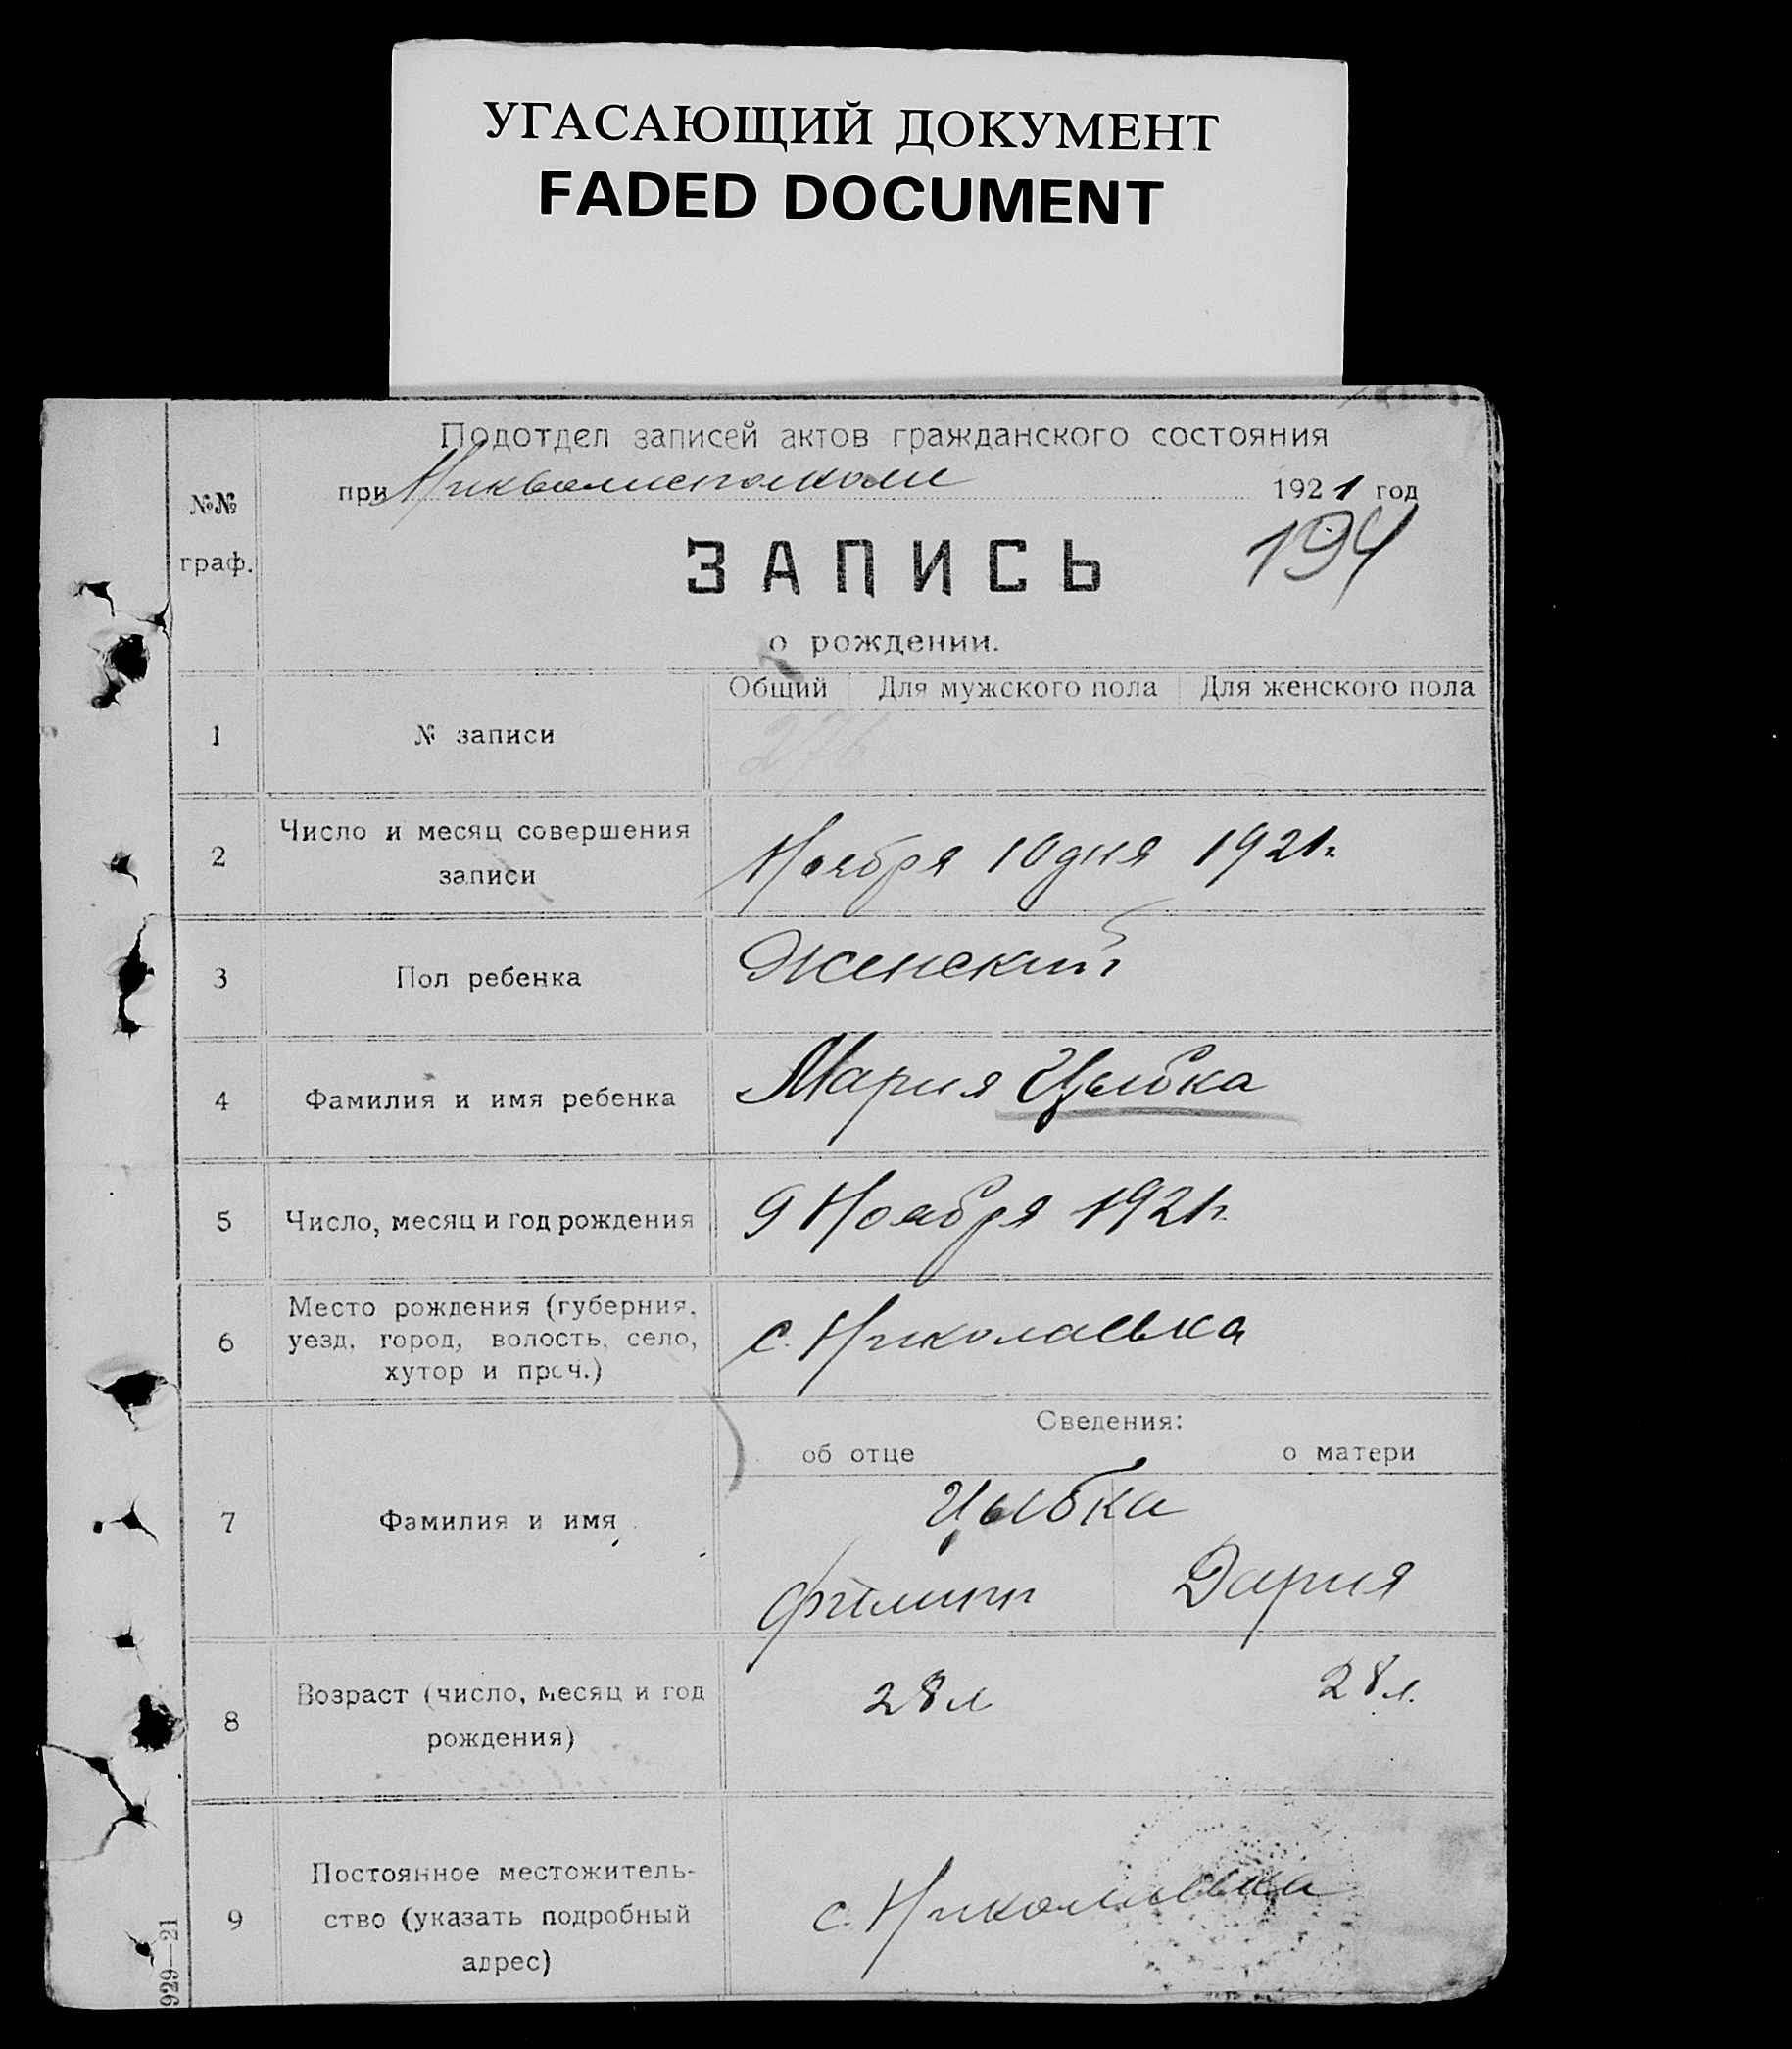 УГАСАЮЩИЙ ДОКУМЕНТ
FADED DOCUMENT
Подотдел записей актов гражданского состояния
при Никволисполкоме 1921 год
№№
граф.
ЗАПИСЬ
194
о рождении.
Общий Для мужского пола Для женского пола
1 № записи 276
2 Число и месяц совершения
записи
Ноября 10 дня 1921 г.
3 Пол ребенка Женский
4 Фамилия и имя ребенка Мария Цыбка
5 Число, месяц и год рождения 9 Ноября 1921 г.
6 Место рождения (губерния,
уезд, город, волость, село,
хутор и проч.)
с. Николаевка
Сведения:
об отце о матери
7 Фамилия и имя
Цыбка
Филипп Дария
8 Возраст (число, месяц и год
рождения)
28 л 28 л.
9 Постоянное местожитель-
ство (указать подробный
адрес)
с. Николаевка
929—21